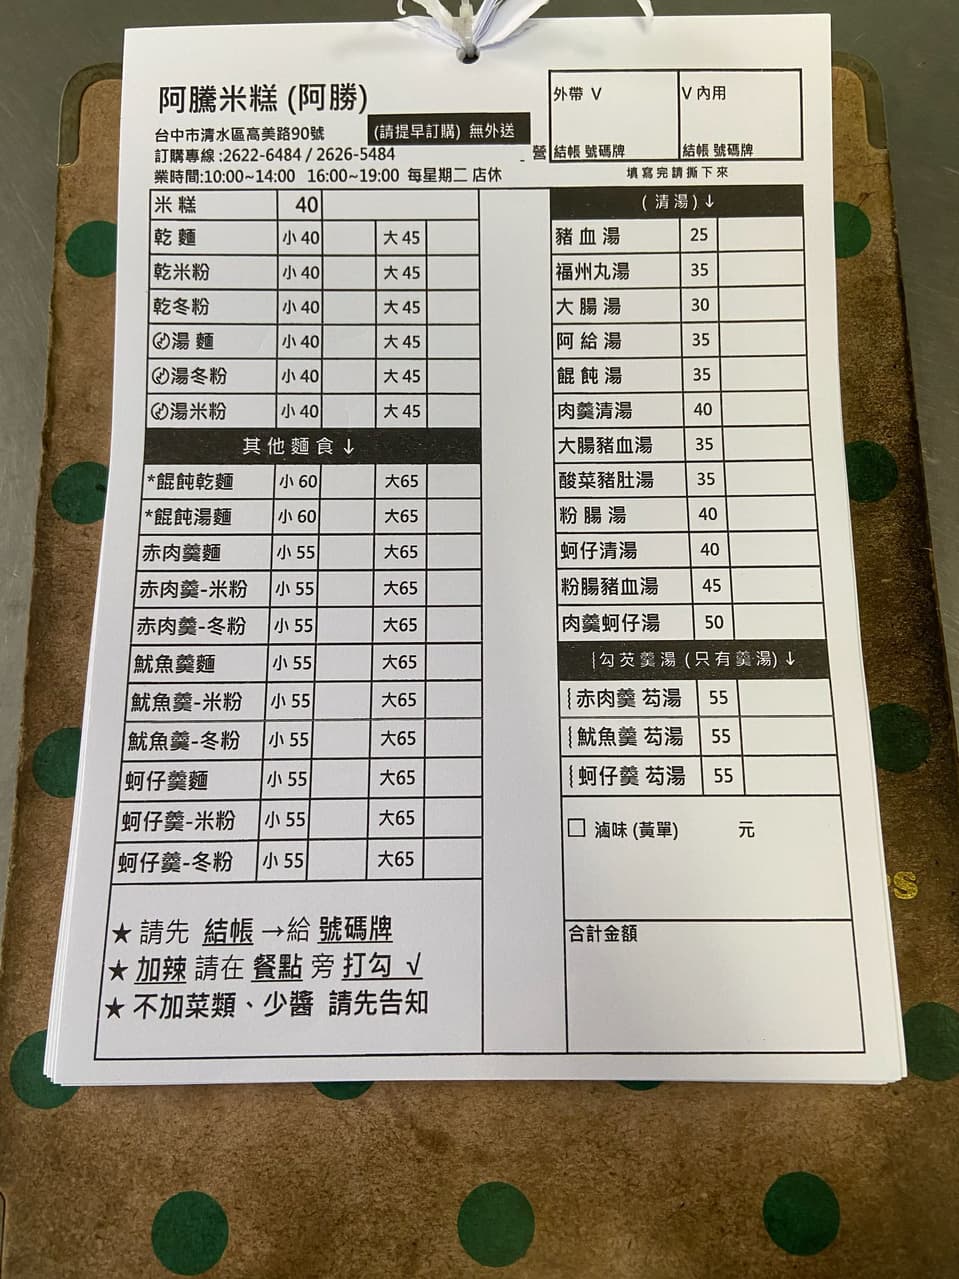 阿騰米糕 (阿勝)
台中市清水區高美路90號
(請提早訂購) 無外送
訂購專線:2622-6484 / 2626-5484
營
業時間:10:00~14:00 16:00~19:00 每星期二 店休
外帶 V
V 內用
結帳 號碼牌
結帳 號碼牌
填寫完請撕下來
米糕 40
乾麵 小 40 大 45
乾米粉 小 40 大 45
乾冬粉 小 40 大 45
湯麵 小 40 大 45
湯冬粉 小 40 大 45
湯米粉 小 40 大 45
其他麵食↓
*餛飩乾麵 小 60 大65
*餛飩湯麵 小 60 大65
赤肉羹麵 小 55 大65
赤肉羹-米粉 小 55 大65
赤肉羹-冬粉 小 55 大65
魷魚羹麵 小 55 大65
魷魚羹-米粉 小 55 大65
魷魚羹-冬粉 小 55 大65
蚵仔羹麵 小 55 大65
蚵仔羹-米粉 小 55 大65
蚵仔羹-冬粉 小 55 大65
★ 請先 結帳 →給 號碼牌
★ 加辣 請在 餐點 旁 打勾 √
★ 不加菜類、少醬 請先告知
(清湯)↓
豬血湯 25
福州丸湯 35
大腸湯 30
阿給湯 35
餛飩湯 35
肉羹清湯 40
大腸豬血湯 35
酸菜豬肚湯 35
粉腸湯 40
蚵仔清湯 40
粉腸豬血湯 45
肉羹蚵仔湯 50
勾芡羹湯 (只有羹湯)↓
赤肉羹 芶湯 55
魷魚羹 芶湯 55
蚵仔羹 芶湯 55
☐ 滷味 (黃單) 元
合計金額